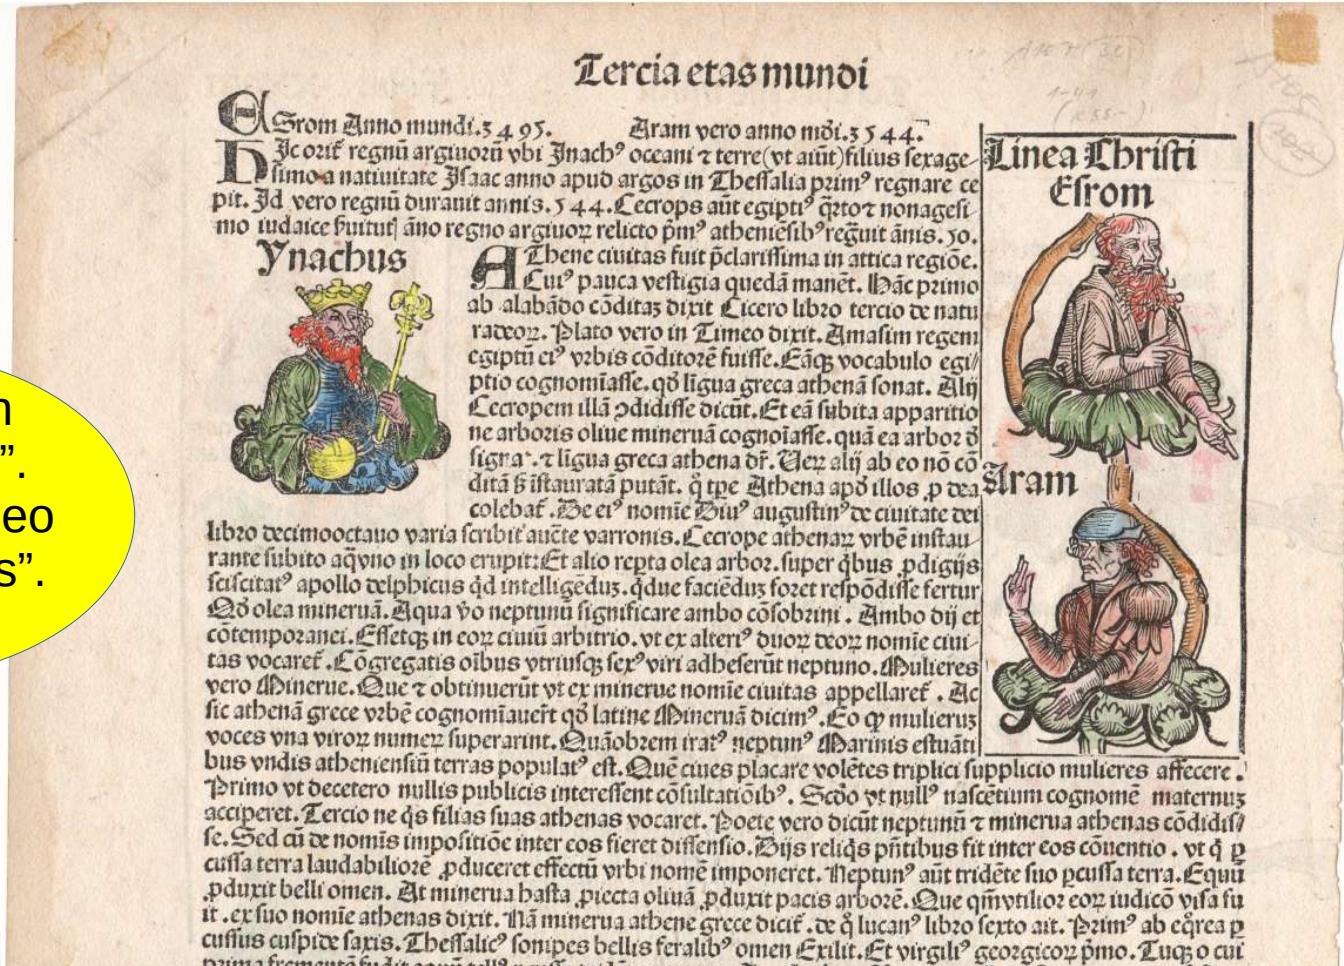 Tercia etas mundi
ESrom Anno mundi.3495. Aram vero anno mūdi.3544.
HIc orit᷑ regnū argiuorū vbi Inachꝰ oceani ⁊ terre(vt aiūt)filius sexage-
simo a natiuitate Isaac anno apud argos in Thessalia primꝰ regnare ce
pit. Id vero regnū durauit annis.544.Cecrops aūt egiptiꝰ q̄rto⁊ nonagesi-
mo iudaice ẜuitut᷑ āno regno argiuoꝝ relicto p̄mꝰ atheniēsibꝰ regnuit ānis.50.
Ynachus
AThene ciuitas fuit p̄clarissima in attica regiōe.
Cuiꝰ pauca vestigia quedā manēt. Hāc primo
ab alabādo cōditaꝫ dixit Cicero libro tercio de natu
ra deoꝝ. Plato vero in Timeo dixit. Amasim regem
egiptū eiꝰ vrbis cōditorē fuisse. Eāqꝫ vocabulo egi/
ptio cognomīasse. qđ līgua greca athenā sonat. Alij
Cecropem illā ꝯdidisse dicūt. Et eā subita apparitio
ne arboris oliue mineruā cognoīasse. quā ea arbor đ
signa-. ⁊ līgua greca athena dr̄. Ueꝝ alij ab eo nō cō
ditā ẜ īstauratā putāt. q̄ tꝑe Athena apđ illos ꝓ dea
colebat᷑. De eiꝰ nomīe Diuꝰ augustinꝰ de ciuitate dei
libro decimooctauo varia scribit aucte varronis. Cecrope athenaꝝ vrbē instau-
rante subito aq̄ vno in loco erupit: Et alio repta olea arbor. super q̄bus ꝓdigijs
sciscitatꝰ apollo delphicus qđ intelligēduꝫ. qđue faciēduꝫ foret respōdisse fertur
Qđ olea mineruā. Aqua v̄o neptunū significare ambo cōsobrini. Ambo dij et
cōtemporanei. Essetqꝫ in eoꝝ ciuiū arbitrio. vt ex alteriꝰ duoꝝ deoꝝ nomīe ciui-
tas vocaret᷑. Cōgregatis oībus vtriusqꝫ sexꝰ viri adheserūt neptuno. Mulieres
vero Minerue. Que ⁊ obtinuerūt vt ex minerue nomīe ciuitas appellaret᷑. Ac
sic athenā grece vrbē cognomīauer̄t qđ latine Mineruā dicimꝰ. Eo ꝙ mulieruꝫ
voces vna viroꝝ numeꝝ superarint. Quāobrem iratꝰ neptunꝰ Marinis estuāti
bus vndis atheniensiū terras populatꝰ est. Quē ciues placare volētes triplici supplicio mulieres affecere.
Primo vt decetero nullis publicis interessent cōsultatiōibꝰ. Scđo vt nullꝰ nascētium cognomē maternuꝫ
acciperet. Tercio ne q̄s filias suas athenas vocaret. Poete vero dicūt neptunū ⁊ minerua athenas cōdidis/
se. Sed cū de nomīs impositiōe inter eos fieret dissensio. Dijs reliq̄s pn̄tibus fit inter eos cōuentio. vt q̄ ꝑ
cussa terra laudabiliorē ꝓduceret effectū vrbi nomē imponeret. Neptunꝰ aūt tridēte suo ꝑcussa terra. Equū
ꝓduxit belli omen. At minerua hasta ꝓiecta oliuā ꝓduxit pacis arborē. Que qm̄ vtilior eoꝝ iudicō visa fu
it. ex suo nomīe athenas dixit. Nā minerua athene grece dicit᷑. de q̄ lucanꝰ libro sexto ait. Primꝰ ab eq̄rea ꝑ
cussus cuspide saxis. Thessalicꝰ sonipes bellis feralibꝰ omen Exilit. Et virgiliꝰ georgicoꝝ p̄mo. Tuqꝫ o cui
Linea Christi
Esrom
Aram
”.
eo
s”.